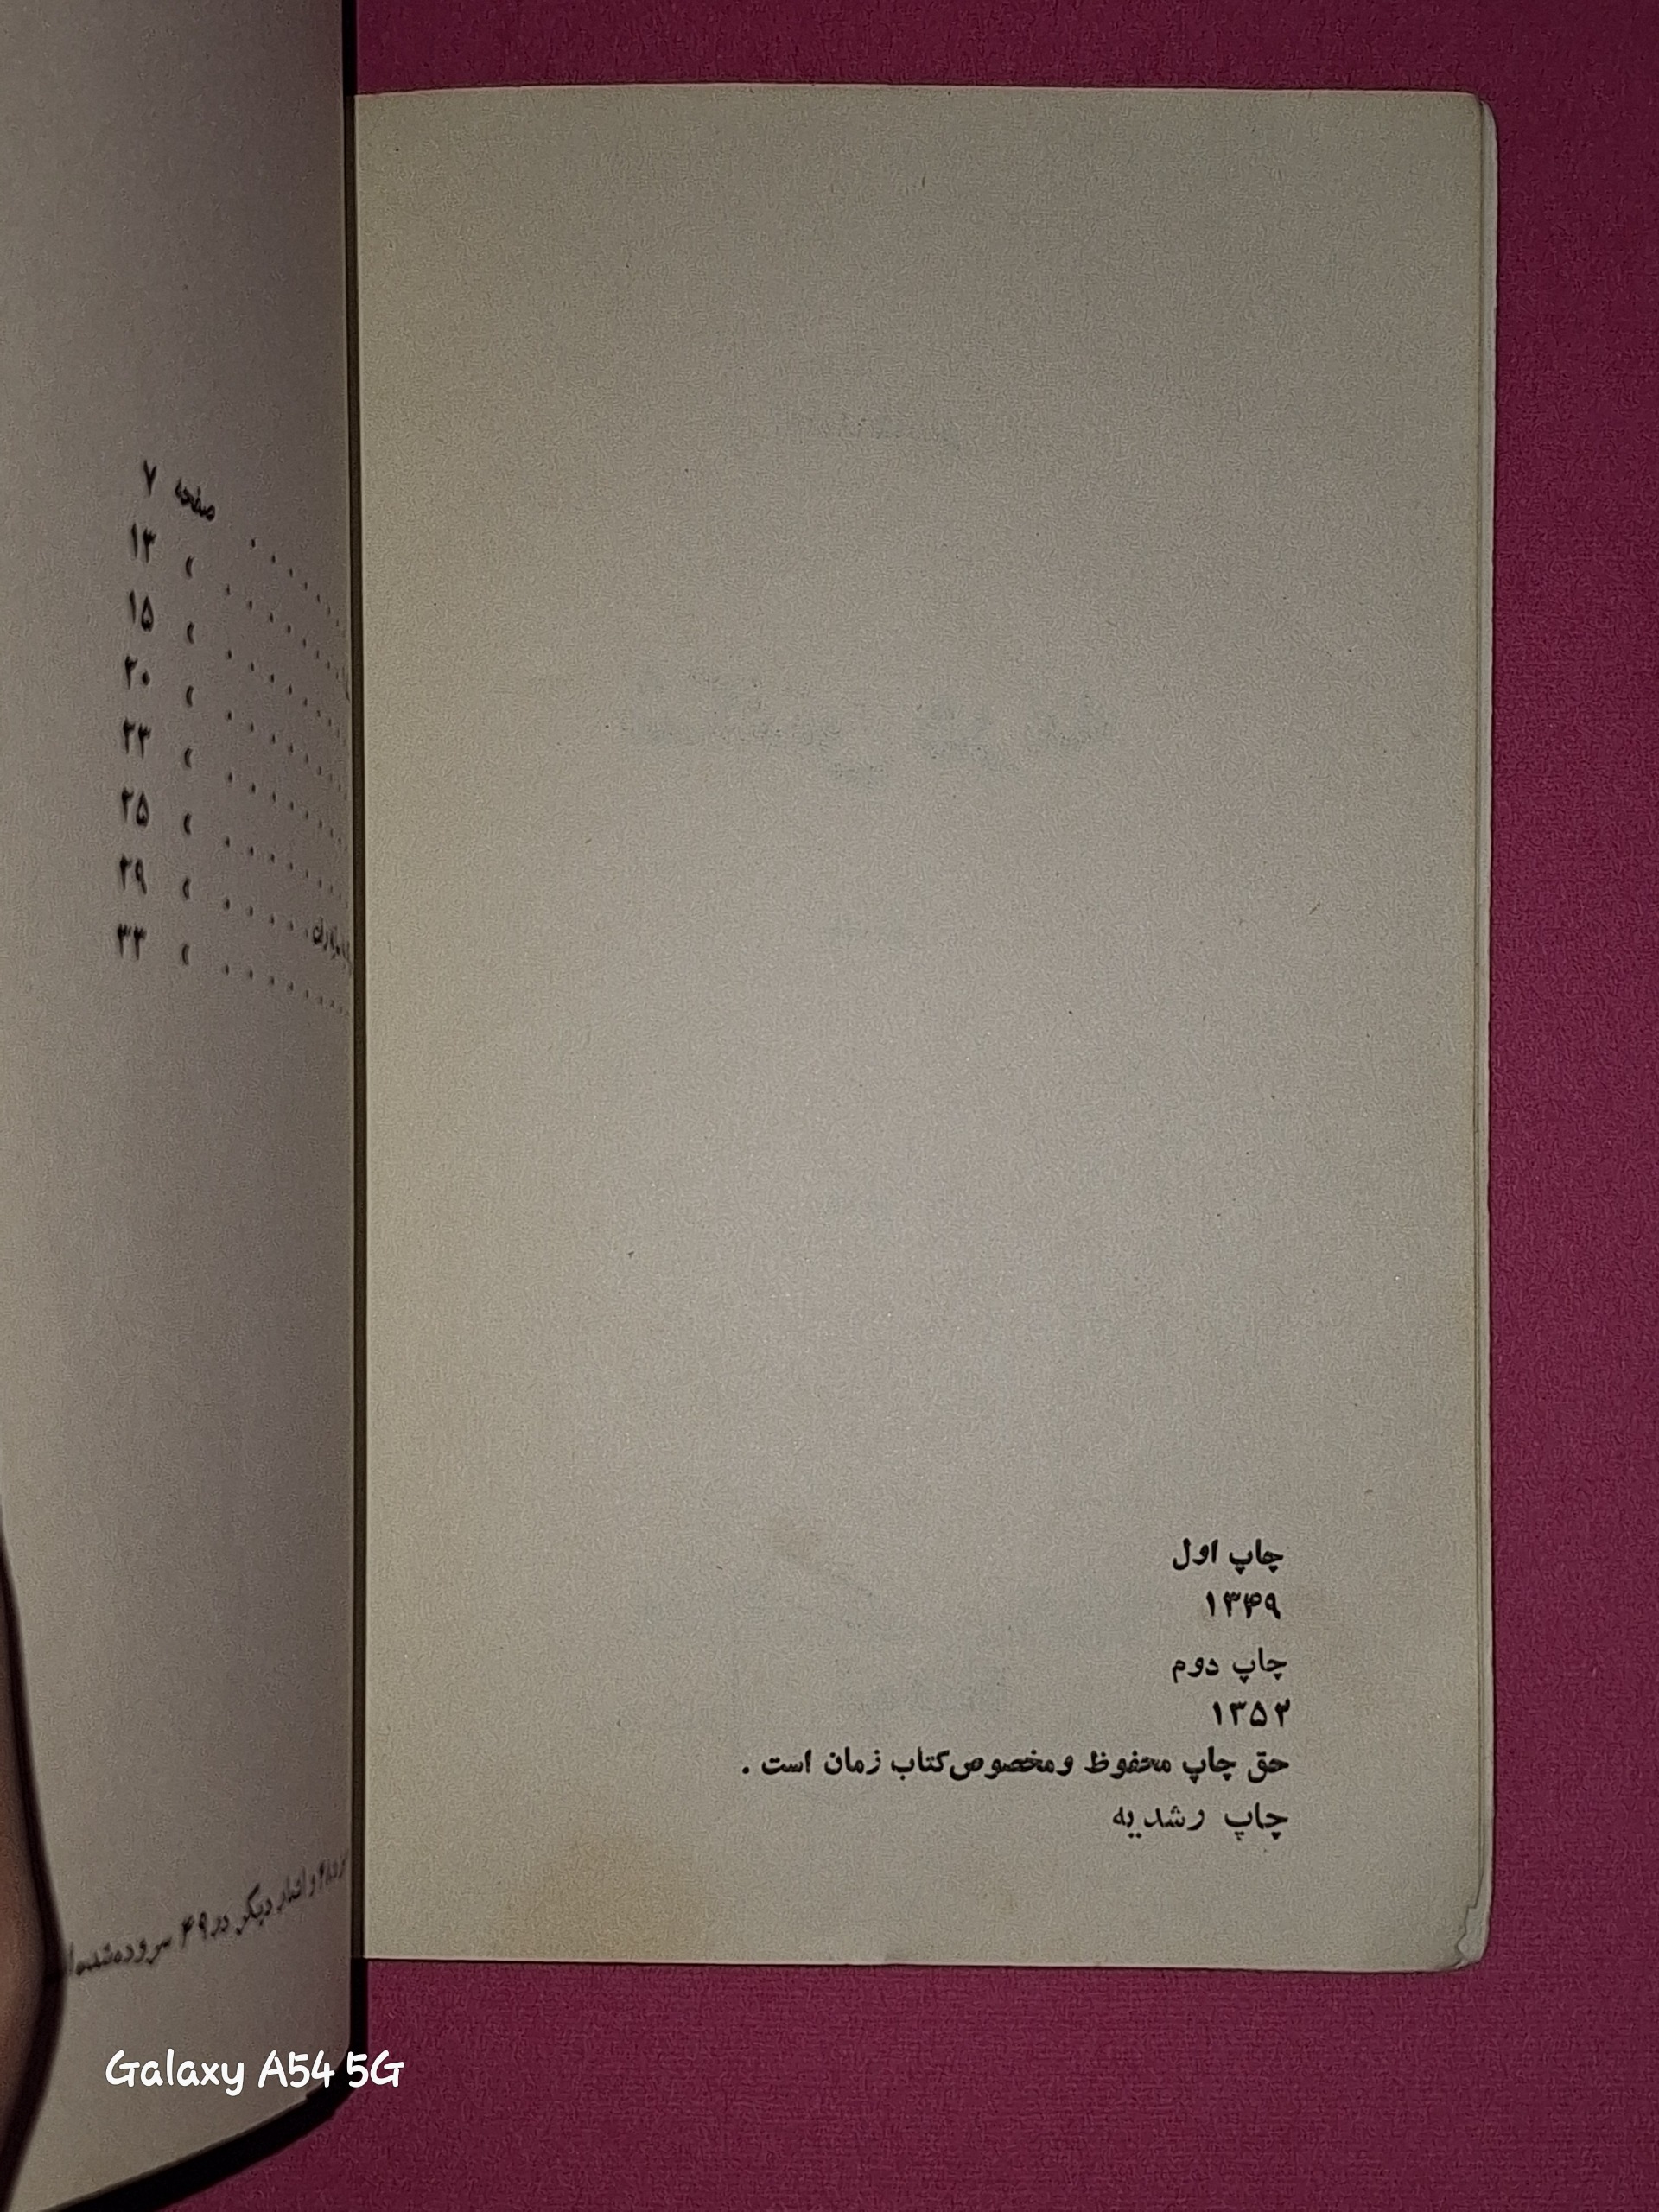 چاپ اول
۱۳۴۹
چاپ دوم
۱۳۵۲
حق چاپ محفوظ ومخصوص‌کتاب زمان است .
چاپ رشدیه
صفحه ۷
» ۱۳
» ۱۵
» ۲۰
» ۲۳
» ۲۵
» ۲۹
» ۳۳
دیگر در ۴۹ سروده‌شده
Galaxy A54 5G